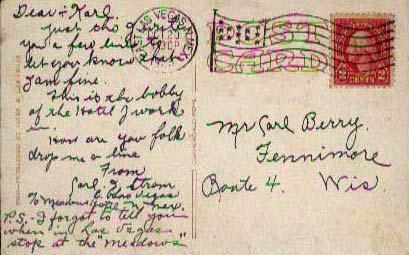 Dear & Karl.
Just tho I'd drop
you a few lines to
let you know that
I am fine.
This is the lobby
of the Hotel I work
in.
How are you folk
drop me a line
From
Carl Strom
Las Vegas
% Meadows Hotel N. Mex.
P.S. - I forgot to tell you
when in Las Vegas
stop at the "Meadows"
LAS VEGAS, N. MEX.
2 CENTS 2
Mr Carl Berry.
Fennimore
Route 4. Wis.